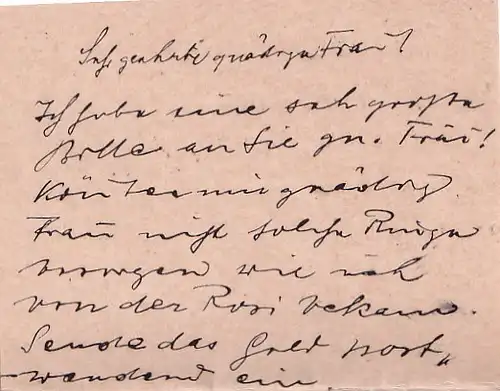 Seh. geahrte gnädige Frau!
Ich habe eine seh große
Bitte an Sie gn. Frau!
Könten mir gnädig.
Frau nicht solche Ringe
besorgen wie ich
von der Rosi bekam.
Sende das Geld post„
wendend ein.